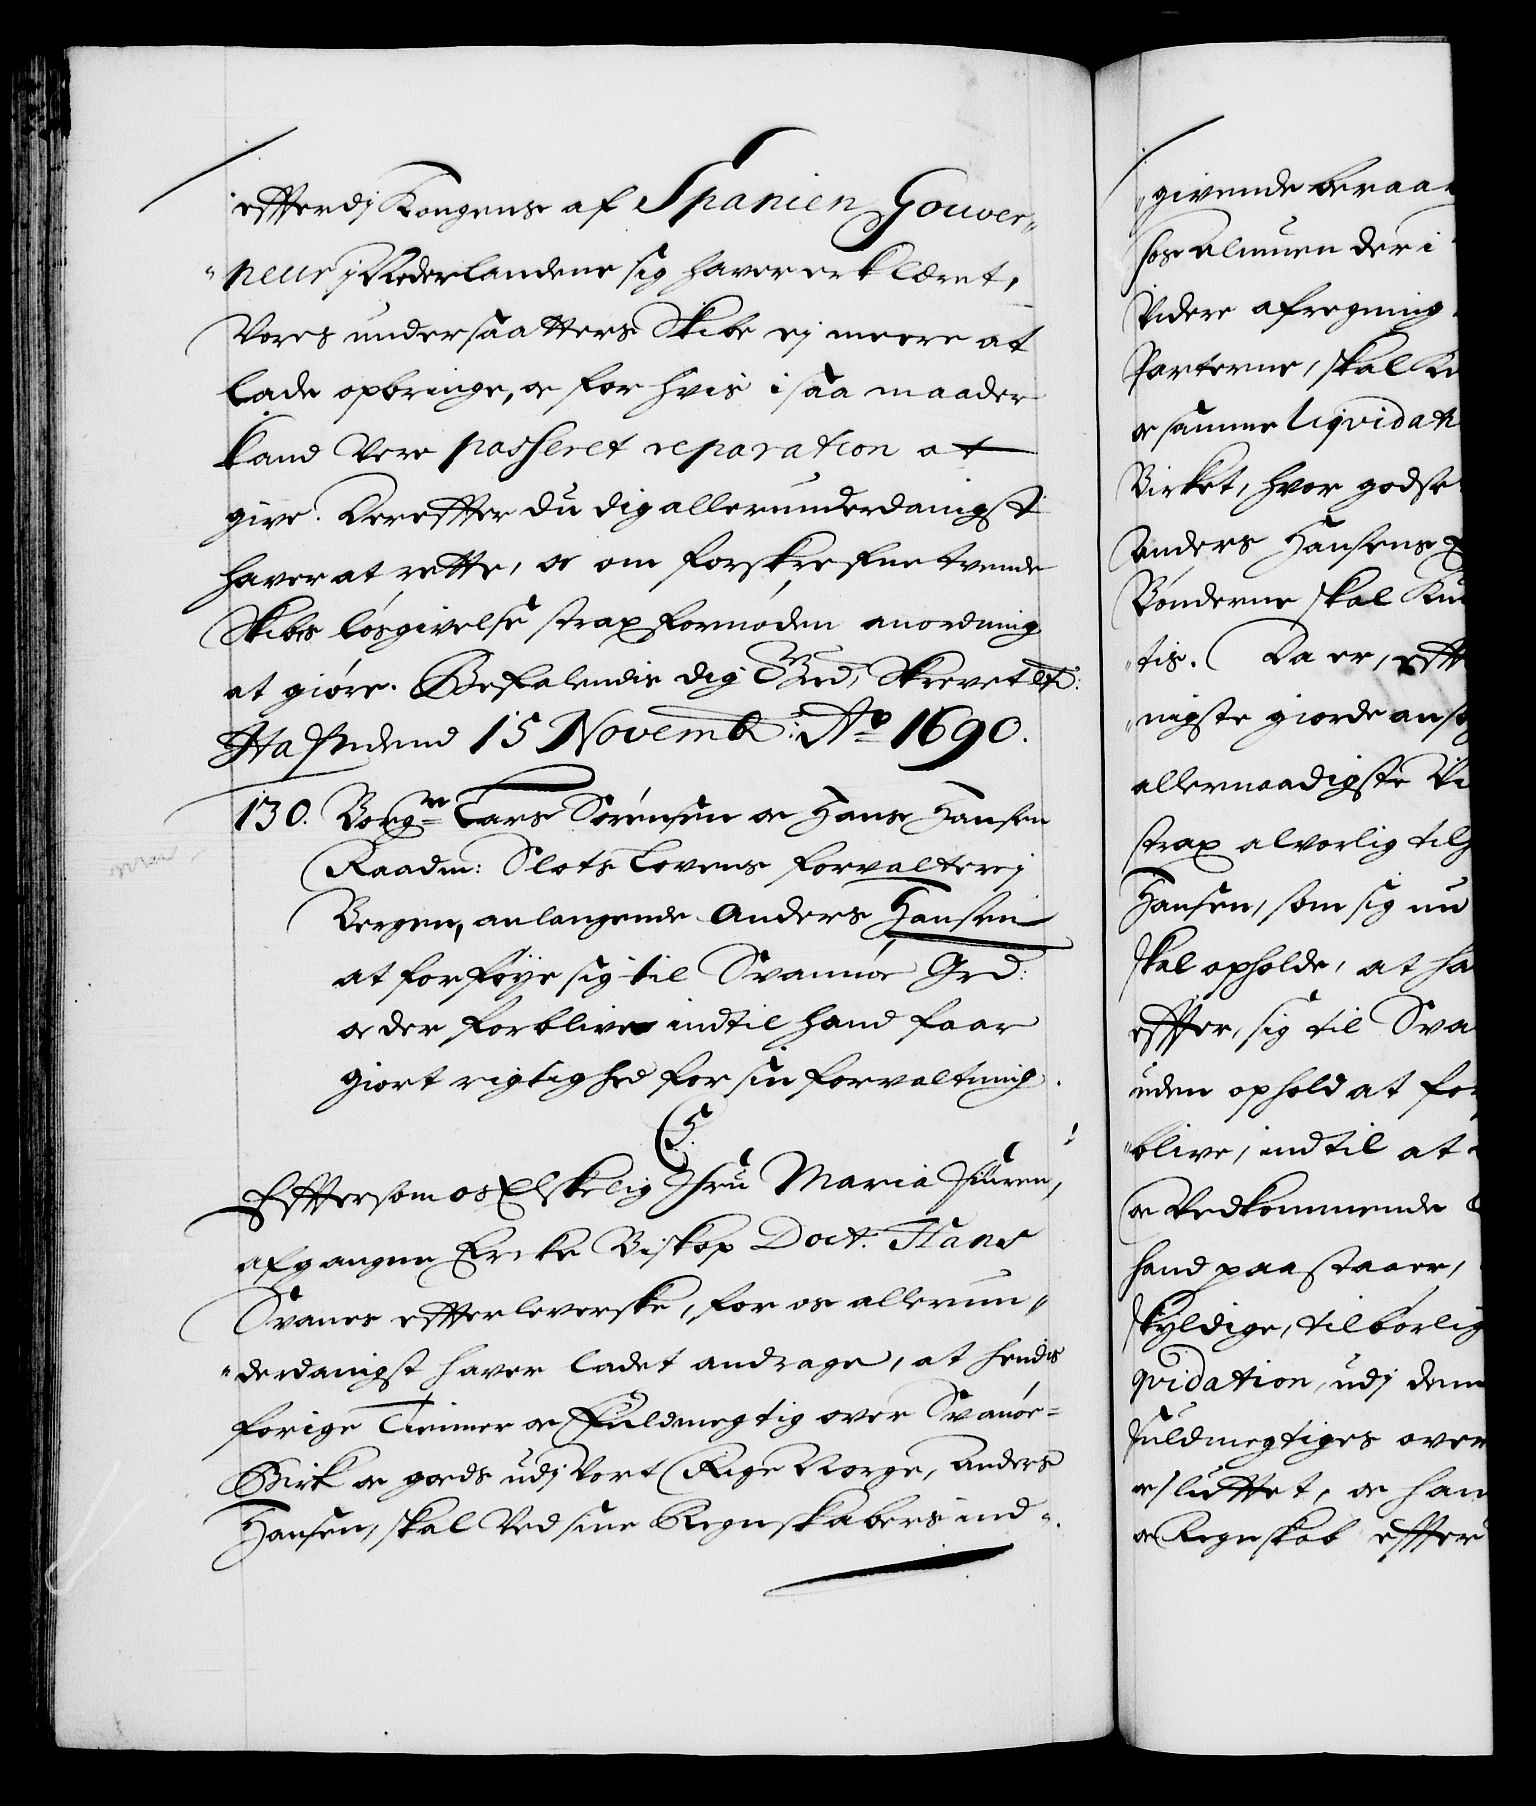 efterdj Kongens af Spanien Gouver„
„neur j Nederlandene sig haver erklæret,
Vores undersaatters Skibe ej meere at
lade opbringe, oc for hvis i saa maader
kand Vere passeret reparation at
give. Derefter du dig allerunderdanigst
haver at rette, oc om forskrefne tvende
Skibs løsgivelse strax fornøden anordning
at giøre. Befalendis dig Gud, Skrevet etc:
Hafniæ dend 15 Novemb: Ao 1690.
130. Borgm Lars Sørensen oc Hans Hansen
Raadm: Slots Lovens forvalter j
Bergen, anlangende Anders Hansen
at forføye sig til Svannøe Grd:
oc der forblive indtil hand faar
giort rigtighed for sin forvaltning.
C5.
Eftersom os Elskelig Fru Maria Fiuren,
afgangne Ercke Biskop Doct. Hans
Svanes efterleverske, for os allerun„
„derdanigst haver ladet andrage, at hendis
forige Tienner oc Fuldmegtig over Svanøe=
Birk oc gods udj Vort Rige Norge, Anders
Hansen, skal Ved sine Regnskabers ind„
givende beraa
hos Almuen der i
Videre afregning
Parterne, skal
oc samme liqvidati
Birket, hvor godse
Anders Hansens
Bønderne skal
„tis. Da er, eft
„nigste giorde ans
allernaadigste Vi
strax alvorlig tilh
Hansen, som sig nu
skal opholde, at ha
efter, sig til Sva
uden ophold at for
„blive, indtil at
oc Vedkommende
hand paastaaer,
skyldige, tilbørlig
qvidation, udj den
fuldmegtiges over
sluttet, oc han
oc Regnskab efter